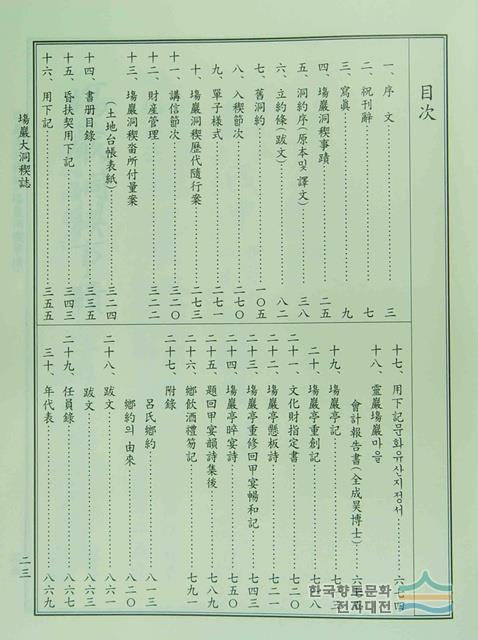 目次
一、序文 三
二、祝刊辭 七
三、寫眞 九
四、場巖洞稧事蹟 二五
五、洞約序(原本및 譯文) 三八
六、立約條(跋文) 八二
七、舊洞約 一〇五
八、入稧節次 二七〇
九、單子樣式 二七一
十、場巖洞稧歷代隨行案 二七三
十一、講信節次 三二〇
十二、財産管理 三二二
十三、場巖洞稧畓所付量案
(土地台帳表紙) 三二四
十四、書册目錄 三三五
十五、昏扶契用下記 三四三
十六、用下記 三五五
十七、用下記문화유산지정서 六七四
十八、靈巖場巖마을
會計報告書(全成昊博士)
十九、場巖亭記
二十、場巖亭重創記
二十一、文化財指定書 七二〇
二十二、場巖亭懸板詩 七二一
二十三、場巖亭重修回甲宴暢和記 七四三
二十四、場巖亭晬宴詩 七五〇
二十五、題回甲宴韻詩集後 七八九
二十六、鄕飮酒禮笏記 七九一
二十七、附錄
呂氏鄕約 八一三
鄕約의 由來 八二〇
二十八、跋文 八六一
跋文 八六三
二十九、任員錄 八六七
三十、年代表 八六九
場巖大洞稧誌
二三
한국향토문화
전자대전